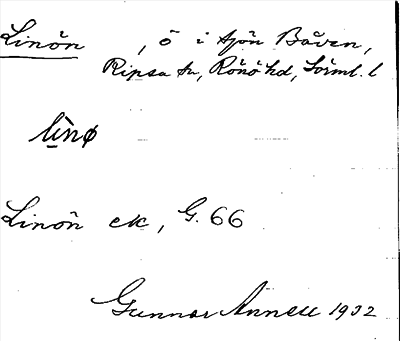 Linön, ö i sjön Båven,
Ripsa sn, Rönö hd, Sörml. l
li̱̇nø
Linön ek, G. 66
Gunnar Annell 1932